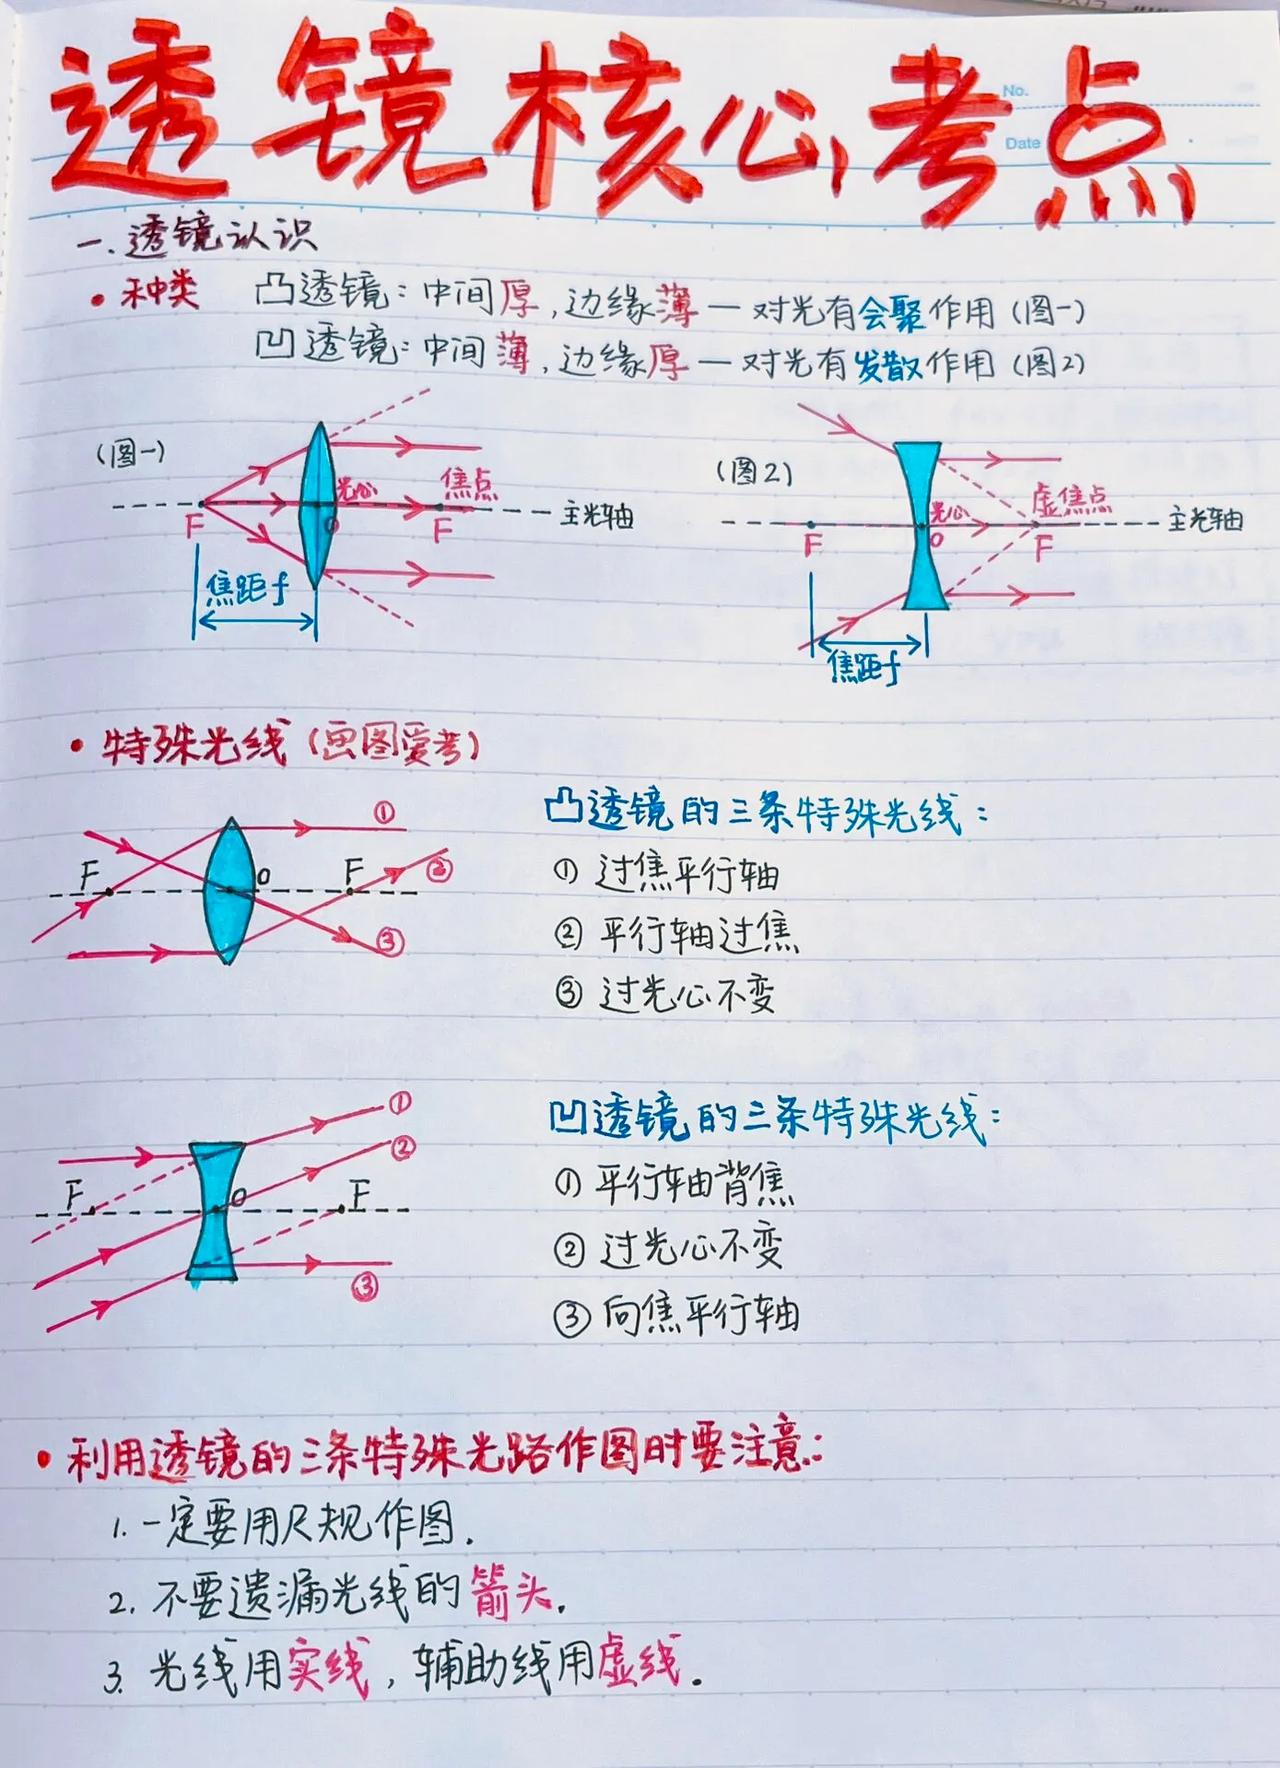 透镜核心考点
No.
Date
一.透镜认识
• 种类 凸透镜：中间厚,边缘薄 — 对光有会聚作用(图一)
凹透镜：中间薄,边缘厚 — 对光有发散作用(图2)
(图一) F 光心 O 焦点 F 主光轴
焦距f
(图2) F 光心 O 虚焦点 F 主光轴
焦距f
• 特殊光线(画图爱考)
① F O F ② ③
凸透镜的三条特殊光线：
① 过焦平行轴
② 平行轴过焦
③ 过光心不变
① ② F O F ③
凹透镜的三条特殊光线：
① 平行轴背焦
② 过光心不变
③ 向焦平行轴
• 利用透镜的三条特殊光路作图时要注意：
1. 一定要用尺规作图.
2. 不要遗漏光线的箭头.
3. 光线用实线,辅助线用虚线.